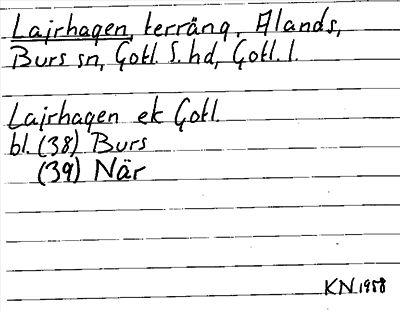 Lajrhagen, terräng, Ålands,
Burs sn, Gotl. S. hd, Gotl. l.
Lajrhagen ek Gotl.
bl. (38) Burs
(39) När
KN. 1958